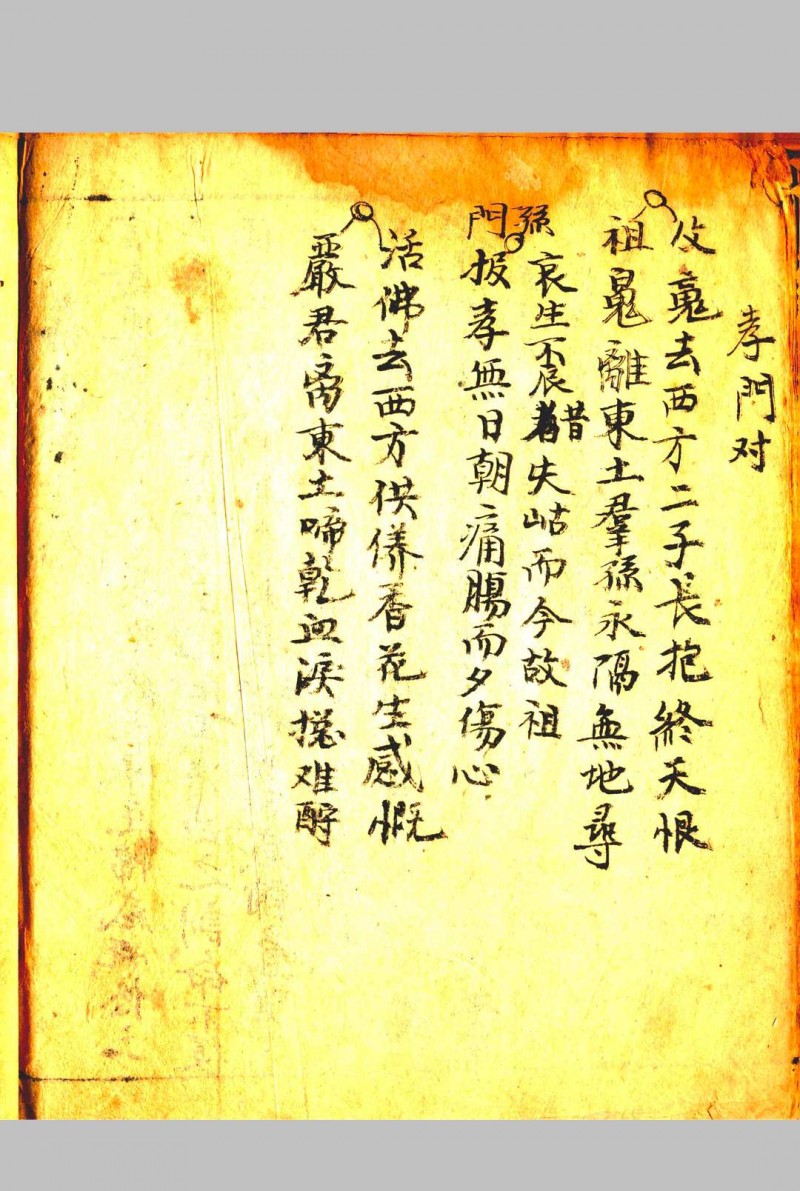 孝門对
父䰟去西方二子長抱終天恨
祖䰟離東土羣孫永隔無地尋
孫哀生不辰昔失岵而今故祖
門报孝無日朝痛腸而夕傷心
活佛去西方供养香花生感慨
嚴君离東土啼乾血淚㧾难酧